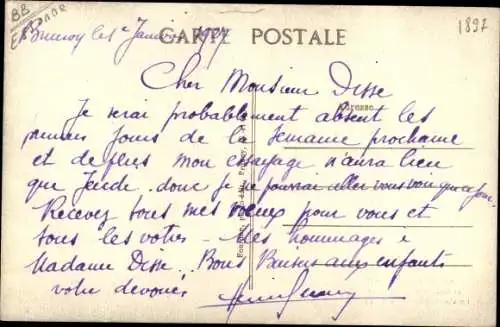 BB
1897
Brunoy le 1e Janvier 1927
CARTE POSTALE
Cher Monsieur Disse
Adresse
Je serai probablement absent les
premiers jours de la semaine prochaine
et de plus mon essayage n'aura lieu
que Jeudi. donc je ne pourrai aller vous voir que ce jour
Recevez tous mes voeux pour vous et
tous les vôtres - Mes hommages à
Madame Disse. Bons Baisers aux enfants
votre dévoué